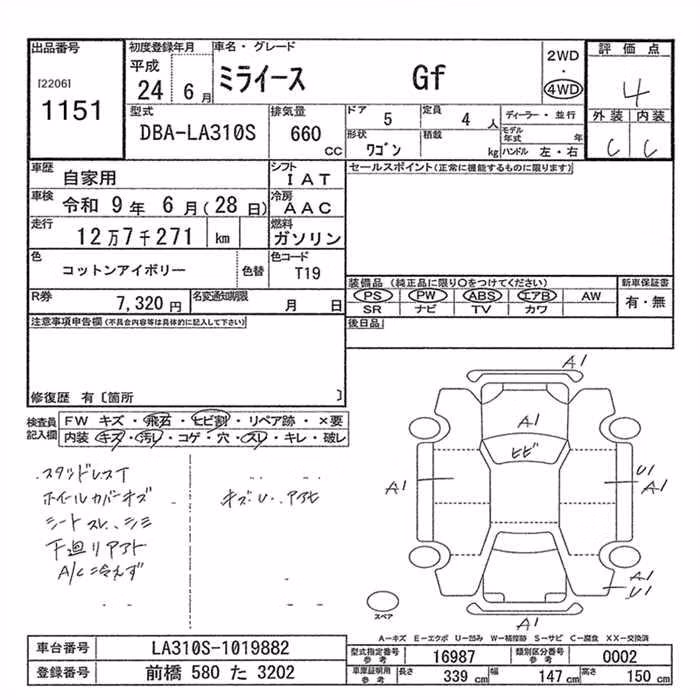 出品番号 初度登録年月 車名・グレード 評価点
[2206] 平成 2WD
1151 24 6月 ミライース Gf ・ 4
4WD
型式 排気量 ドア 5 定員 4人 ディーラー・並行 外装 内装
DBA-LA310S 660 CC 形状 ワゴン 積載 kg モデル年式 年 C C
ハンドル 左・右
車歴 自家用 シフト IAT セールスポイント(正常に機能するものに限ります)
車検 令和 9年 6月(28日) 冷房 AAC
走行 12万7千271 km 燃料 ガソリン
色 コットンアイボリー 色替 色コード T19
装備品 (純正品に限り〇をつけてください) 新車保証書
R券 7,320円 名変通知期限 月 日 PS PW ABS エアB AW 有・無
SR ナビ TV カワ
注意事項申告欄(不具合内容等は具体的に記入して下さい) 後日品
修復歴 有〔箇所 〕
検査員記入欄 FW キズ・飛石・ヒビ割・リペア跡・×要
内装 キズ・汚レ・コゲ・穴・スレ・キレ・破レ
スタッドレスT
ホイールカバーキズ キズU..アサヒ
シートスレ、シミ
下廻りアサヒ
A/C冷えず
A1
A1
ヒビ
A1
U1
A1
A1
U1
A1
スペア
A−キズ E−エクボ U−凹み W−補修跡 S−サビ C−腐食 XX−交換済
車台番号 LA310S-1019882 型式指定番号 参考 16987 類別区分番号 参考 0002
登録番号 前橋 580 た 3202 車庫証明用 参考 長さ 339cm 幅 147cm 高さ 150cm